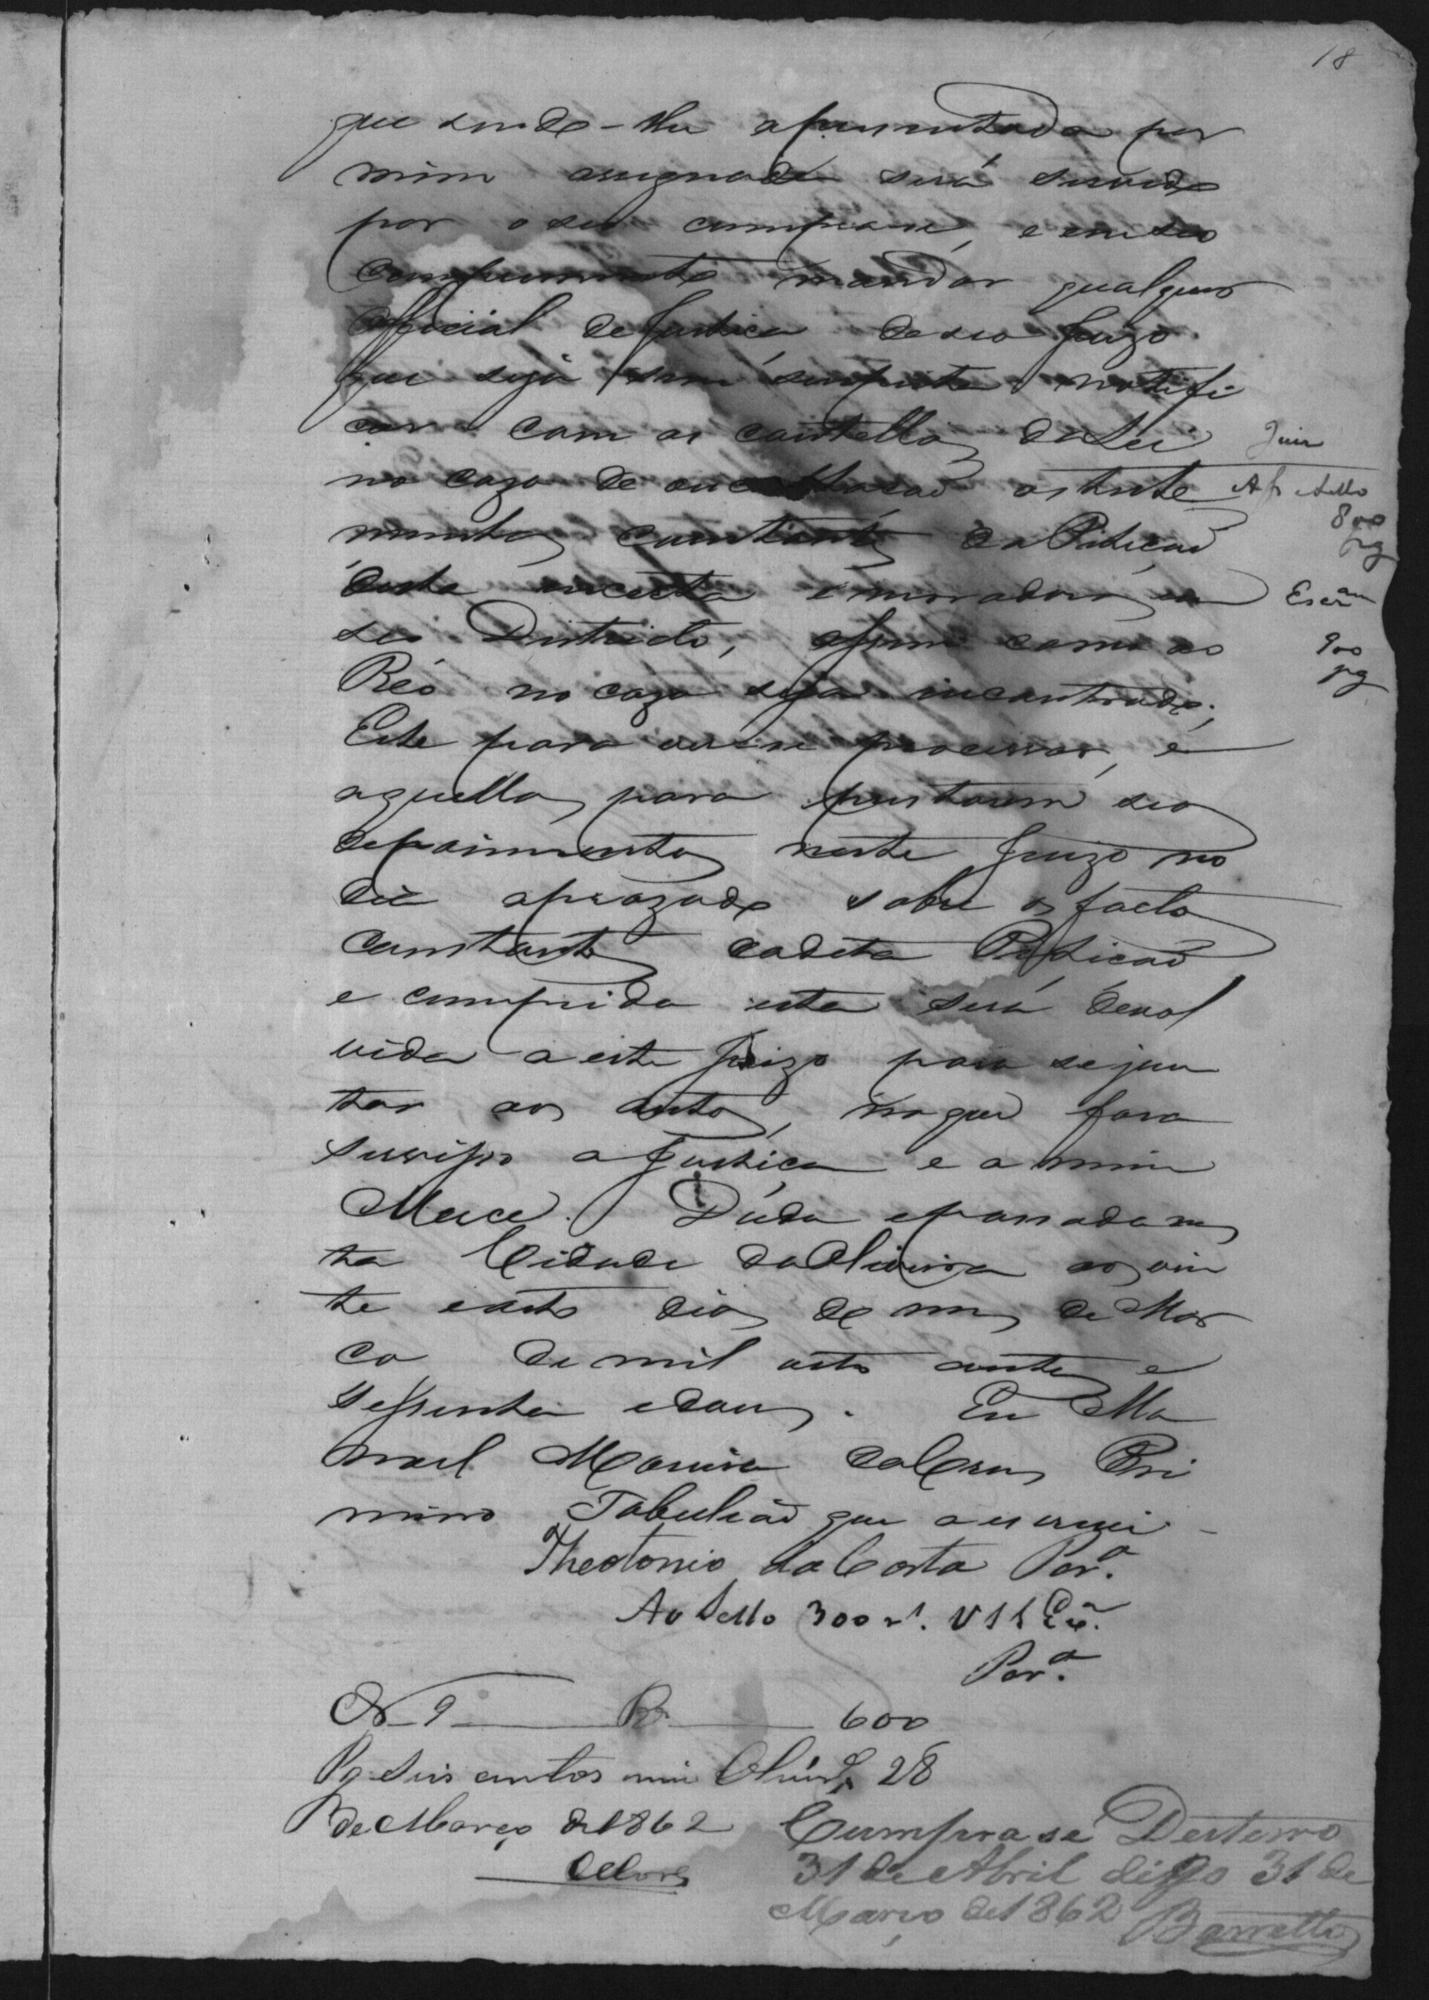 18
que sendo-lhe apresentada por
mim assignada será servido
por o seu cumprase, e em seo
comprimento mandar qualquer
Official de Justica de seo Juizo
que seja sem suspeita notifi
car com as cautellas da Lei
no cazo de occultacaõ as teste
munhas constantes da Peticaõ
desta incerta e moradores em
seo Districto, assim como ao
Réo no cazo seja incontrado;
Este para ver-se processar, e
aquellas para prestarem seos
depoimentos neste Juizo no
dia aprazado sobre os factos
constantes da dita Peticaõ
e comprida esta será devol
vida a este Juizo para se jun
tar aos autos, no que fara
servisso a Justica e a mim
Merce. Dada e passada nes
ta Cidade da Oliveira aos vin
te e oito dias do mes de Mar
co de mil oito centos e
sessenta e dous. Eu Ma
noel Moreira da Cruz Pri
meiro Tabeliaõ que a escrevi
Theotonio da Costa Per.ª
Ao Sello 300 r.s V S S Ex.ª
Per.ª
Juiz
Ap e sello
800
pg
Escram
900
pg
N 9 R 600
Pg seis centos reis Olivr.ª 28
de Março de 1862
Cumpra se Desterro
31 de Abril digo 31 de
Março de 1862
Barretto